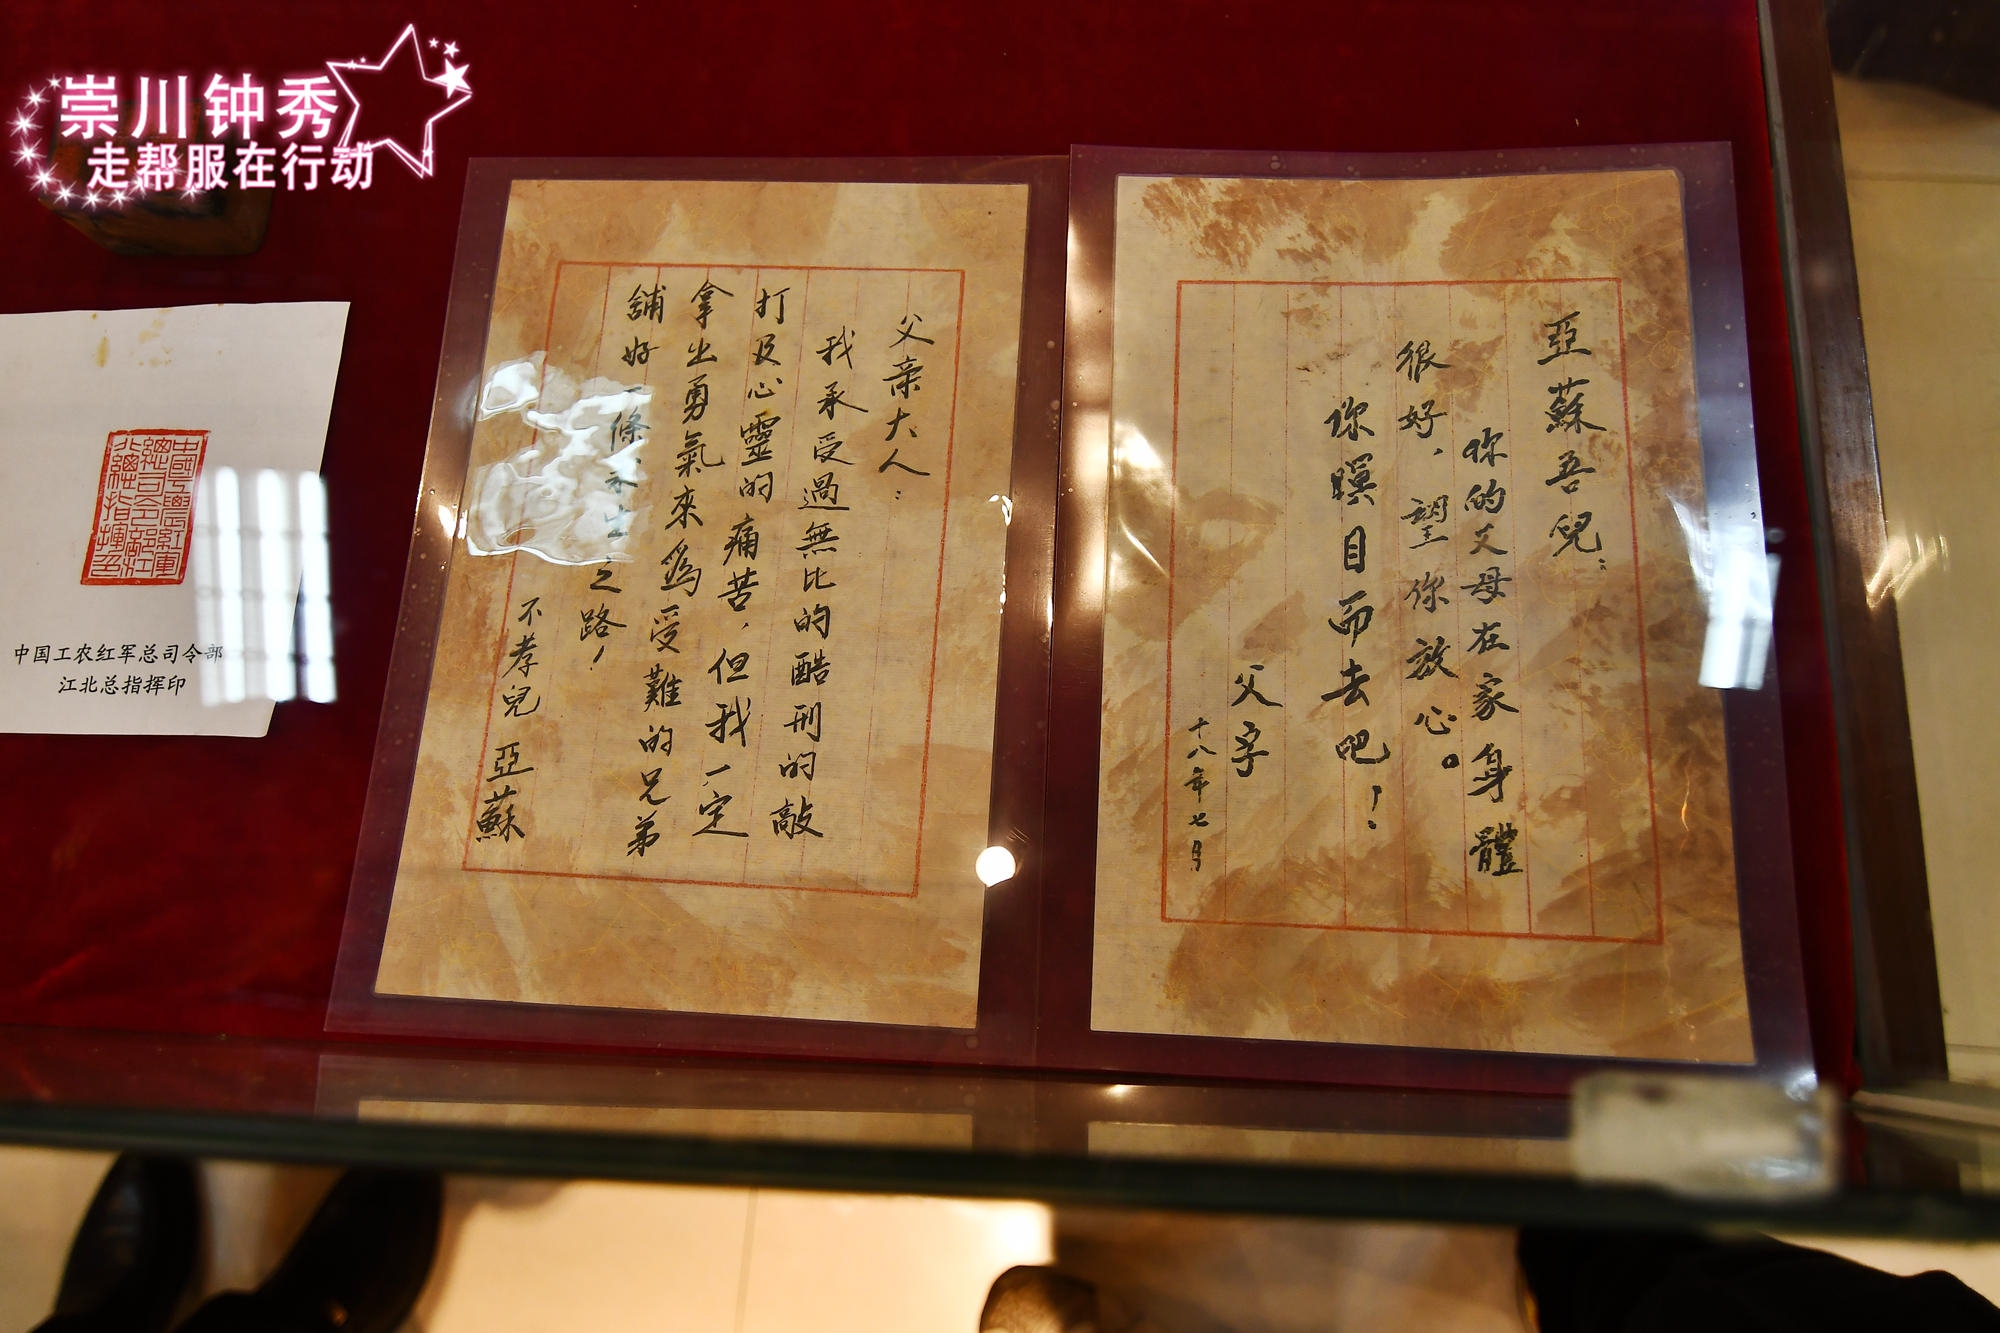 崇川钟秀
走帮服在行动
亞蘇吾兒：
你的父母在家身體
很好，望你放心。
你瞑目而去吧！
父字
十八年七月
父亲大人：
我承受過無比的酷刑的敲
打及心靈的痛苦，但我一定
拿出勇氣來為受難的兄弟
舖好一條永生之路！
不孝兒 亞蘇
中國工農紅軍
總司令部江
北總指揮印
中国工农红军总司令部
江北总指挥印